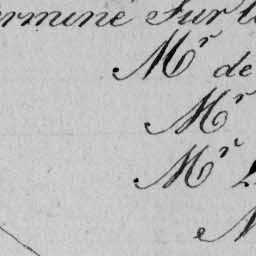 ermine Sur l
Mr de
Mr
Mr